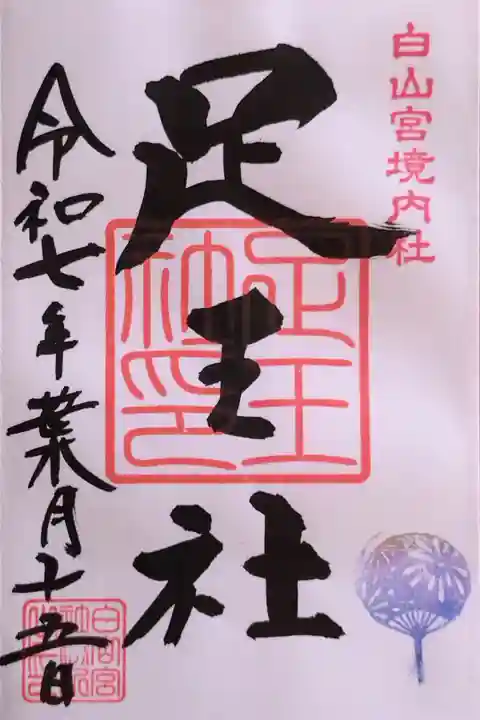 白山宮境内社
足王社
足王社印
令和七年葉月十五日